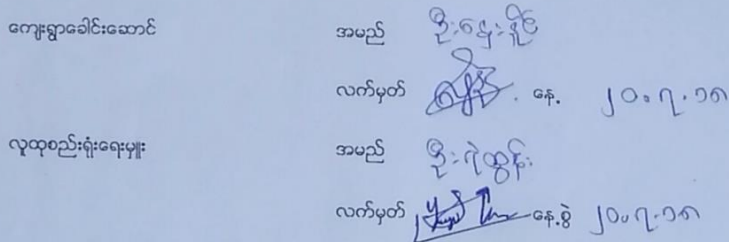 ကျေးရွာခေါင်းဆောင် အမည် ဦးနှေးနှိုင်
လက်မှတ် နေ့. ၂၀.၇.၁၈
လူထုစည်းရုံးရေးမှူး အမည် ဦးရဲထွန်း
လက်မှတ် နေ့.စွဲ ၂၀.၇.၁၈